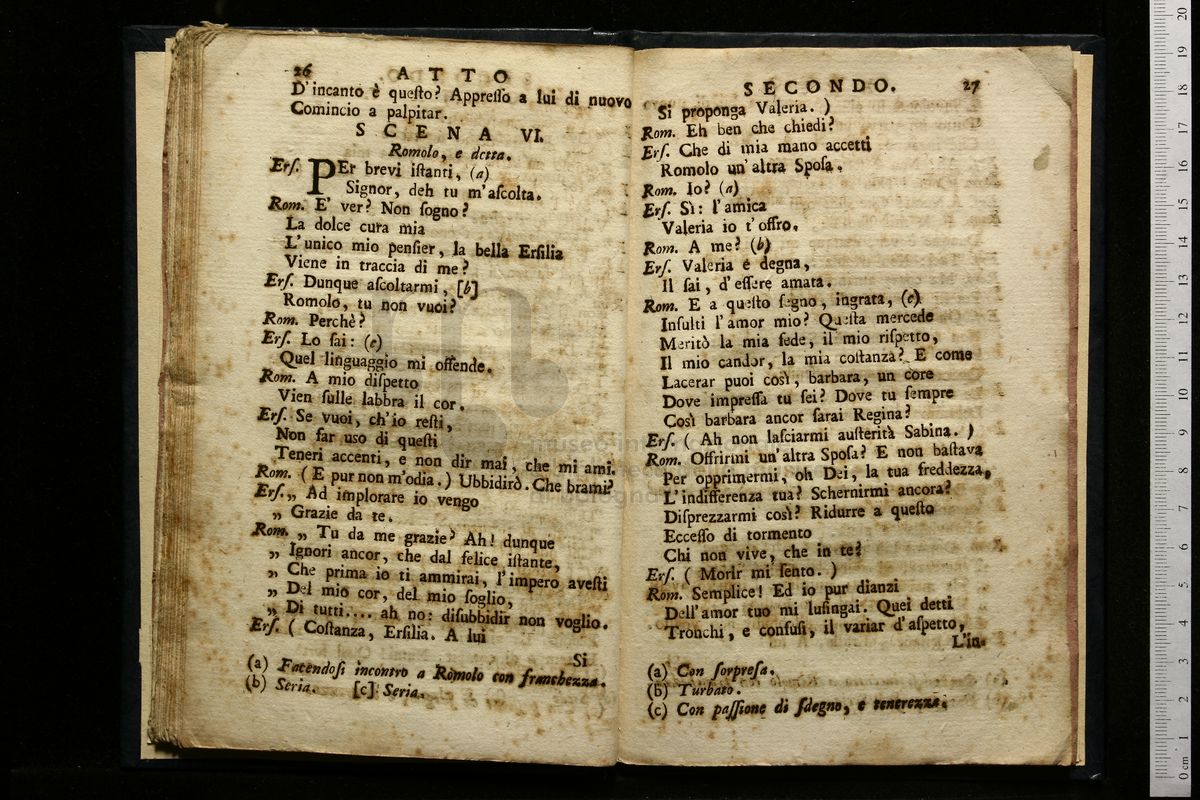 26 ATTO
D'incanto è queſto? Appreſſo a lui di nuovo
Comincio a palpitar.
SCENA VI.
Romolo, e detta.
Erſ. PEr brevi iſtanti, (a)
Signor, deh tu m'aſcolta.
Rom. E' ver? Non ſogno?
La dolce cura mia
L'unico mio penſier, la bella Erſilia
Viene in traccia di me?
Erſ. Dunque aſcoltarmi, [b]
Romolo, tu non vuoi?
Rom. Perchè?
Erſ. Lo ſai: (c)
Quel linguaggio mi offende.
Rom. A mio diſpetto
Vien ſulle labbra il cor.
Erſ. Se vuoi, ch'io reſti,
Non far uso di queſti
Teneri accenti, e non dir mai, che mi ami.
Rom. (E pur non m'odia.) Ubbidirò. Che brami?
Erſ. „ Ad implorare io vengo
„ Grazie da te.
Rom. „ Tu da me grazie? Ah! dunque
„ Ignori ancor, che dal felice iſtante,
„ Che prima io ti ammirai, l'impero aveſti
„ Del mio cor, del mio ſoglio,
„ Di tutti.... ah no: diſubbidir non voglio.
Erſ. (Coſtanza, Erſilia. A lui
Si
(a) Facendoſi incontro a Romolo con franchezza.
(b) Seria. [c] Seria.
SECONDO. 27
Si proponga Valeria.)
Rom. Eh ben che chiedi?
Erſ. Che di mia mano accetti
Romolo un'altra Spoſa.
Rom. Io? (a)
Erſ. Sì: l'amica
Valeria io t'offro.
Rom. A me? (b)
Erſ. Valeria è degna,
Il ſai, d'eſſere amata.
Rom. E a queſto ſegno, ingrata, (c)
Inſulti l'amor mio? Queſta mercede
Meritò la mia fede, il mio riſpetto,
Il mio candor, la mia coſtanza? E come
Lacerar puoi così, barbara, un core
Dove impreſſa tu ſei? Dove tu ſempre
Così barbara ancor ſarai Regina?
Erſ. (Ah non laſciarmi auſterità Sabina.)
Rom. Offrirmi un'altra Spoſa? E non baſtava
Per opprimermi, oh Dei, la tua freddezza,
L'indifferenza tua? Schernirmi ancora?
Diſprezzarmi così? Ridurre a queſto
Ecceſſo di tormento
Chi non vive, che in te?
Erſ. (Morir mi ſento.)
Rom. Semplice! Ed io pur dianzi
Dell'amor tuo mi luſingai. Quei detti
Tronchi, e confuſi, il variar d'aſpetto,
L'in-
(a) Con ſorpreſa.
(b) Turbato.
(c) Con paſſione di ſdegno, e tenerezza.